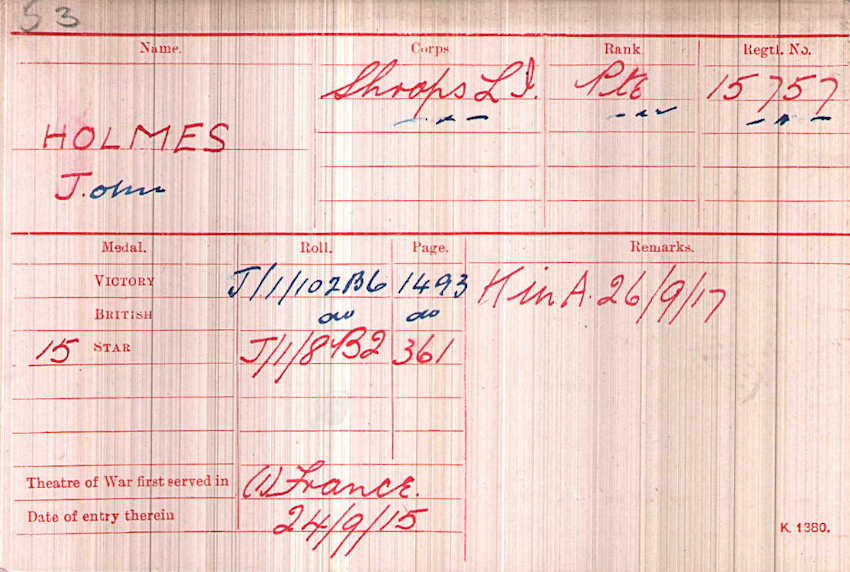 53
Name. Corps Rank Regtl. No.
Shrops L I. Pte 15757
" " "
HOLMES
J.ohn
Medal. Roll. Page. Remarks.
VICTORY J/1/102B6 1493 K in A. 26/9/17
BRITISH do do
15 STAR J/1/8B2 361
Theatre of War first served in (1) France.
Date of entry therein 24/9/15
K. 1380.